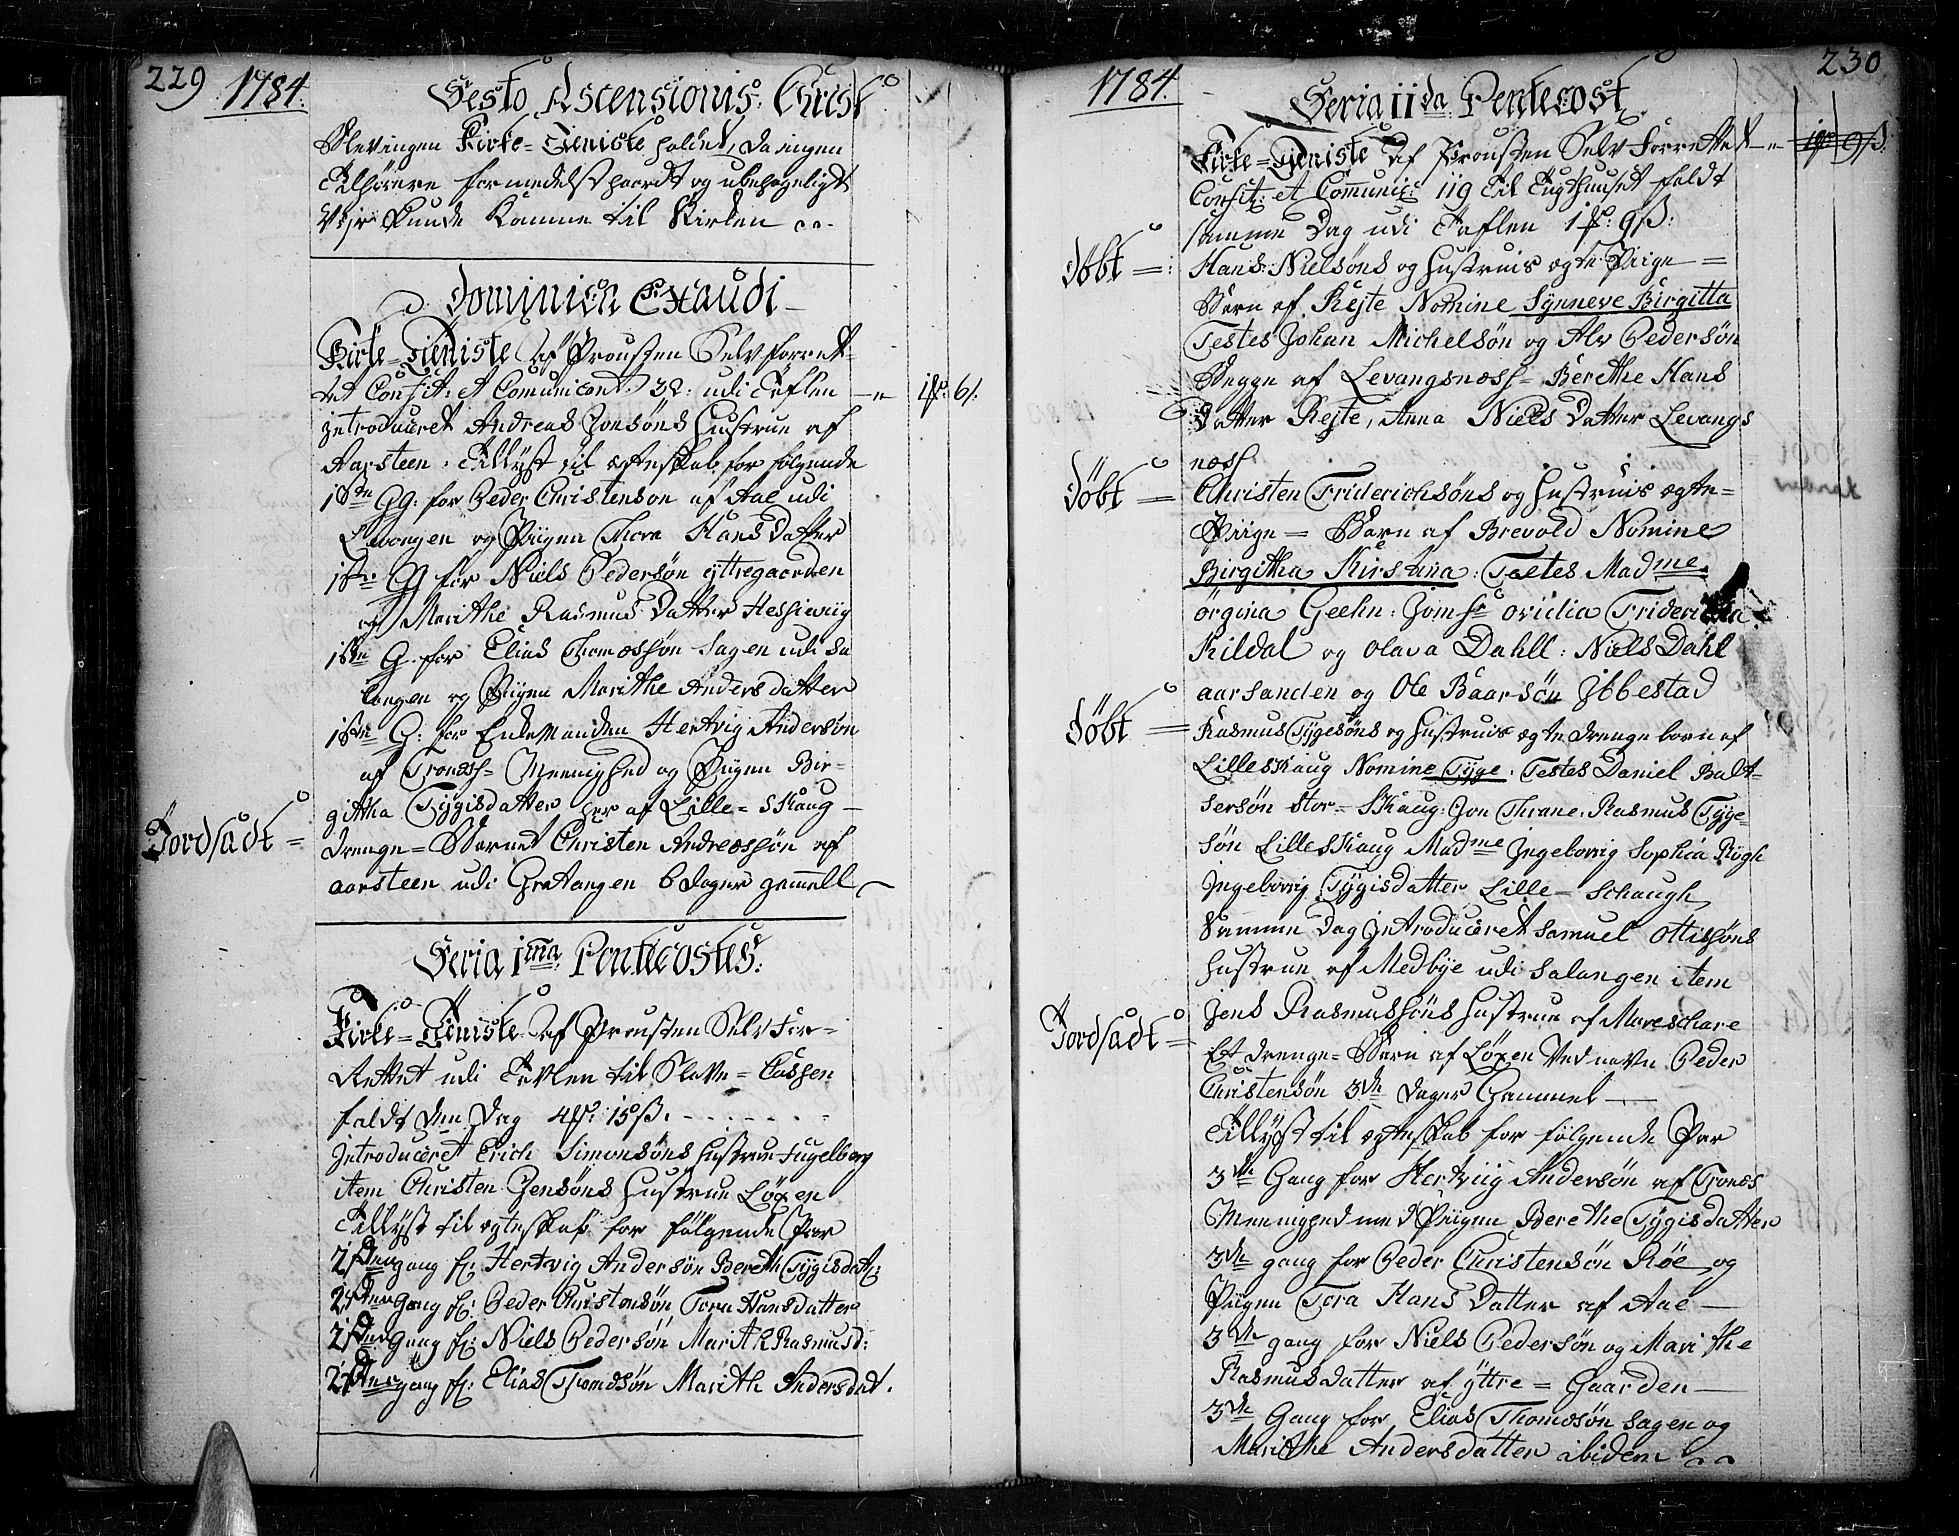 229 1784. Festo Ascensionis Christ
Blev ingen Kirke-Tieniste holdet, da ingen
Tilhørere formedelst haardt og ubehageligt
Vejr kunde komme til Kirken
Dominica Exaudi
Kirke-Tieniste af Prousten Selv forret-
tet Confit: et Comunicant: 32: udi Tavlen 1 6ß.
introduceret Andreas Jonsøns Hustrue af
Aarsteen. Tillyst til ægteskab for følgende
1ste Gg: for Peder Christensøn af Aae udi
og Piigen Thora Hans Datter
1ste G for Niels Pedersøn yttregaarden
og Marithe Rasmus Datter
1ste G. for Elias Thomæssøn Sagen udi Sa
langen og Piigen Marithe Anders datter
1ste G: for Enkemanden Hertvig Andersøn
af Tronæss- Meenighed og Piigen Bir-
githa Tygisdatter her af Lille-Skaug
Jordsadt =
drenge-Barnet Christen Andreæssøn af
aarsteen udi Gratangen 6 dager gamell
Feria 1ma Pentecostes:
Kirke-Tieniste af Prousten Selv For-
Rettet udi Tavlen til Slave-Cassen
faldt den Dag 4 15ß.
Introduceret Erich Simonsøns Hustrue Fugelberg
item Christen Jensøns Hustrue Løxen
Tillyst til ægteskab for følgende Par
2den gang f: Hertvig Andersøn Bereth Tygisdat:
2den Gang f: Peder Christensøn, Tora Hansdatter
2den Gang f: Niels Pedersøn Marith Rasmusd:
2den gang f: Elias Thomæsøn Marith Andersdat.
1784. Feria IIda Pentecost 230
Kirke-Tieniste af Prousten Selv Forrettet 9ß:
Confit: et Communic: 119 til Tugthuuset faldt
samme Dag udi Taflen 1 : 9ß:
Døbt =:
Hans Nielsøns og Hustruis ægte Piige =
Barn af Røjte Nomine Synneve Birgitta
Testes Johan Michelsøn og Alv Pedersøn
Begge af Levangsnæss- Berethe Hans
Datter Røjte, Anna Niels Datter Levangs
næss
Døbt =
Christen Friderichsøns og Hustruis ægte-
Piige = Barn af Brevold Nomine
Birgitha Kirstina: Testes Madme.
Geelm: Jomfr Ovidia Fridericha
Kildal og Olava Dahll: Niels Dahl
aarsanden og Ole Baarsøn Ibbestad
Døbt =
Rasmus Tygesøns og Hustruis ægte drengebarn af
Lilleskaug Nomine Tyge: Testes Daniel Balt-
sersøn Stor-Skaug: Jon Thrane: Rasmus Tyge-
søn Lilleskaug Madme Ingeborrig Sophia Kiigh
Ingeborrig Tygisdatter Lille-Schaugh
Samme Dag introduceret Samuel Ottissøns
Hustrue af Medbye udi Salangen item
Jens Rasmussøns Hustrue af Mareschare
Jordsadt =
Et drenge-Barn af Løxen Ved navn Peder
Christensøn 3de dager Gammel
Tillyst til ægteskab for følgende Par
3de Gang for Hertviig Andersøn af Tronæs
Meenighed med Piigen Berethe Tygisdatter
3de gang for Peder Christensøn Røe og
Piigen Tora Hans Datter af Aae
3de gang for Niels Pedersøn og Marithe
Rasmusdatter af yttre-Gaarden
3de Gang for Elias Thomæsøn Sagen og
Marithe Andersdatter ibidem